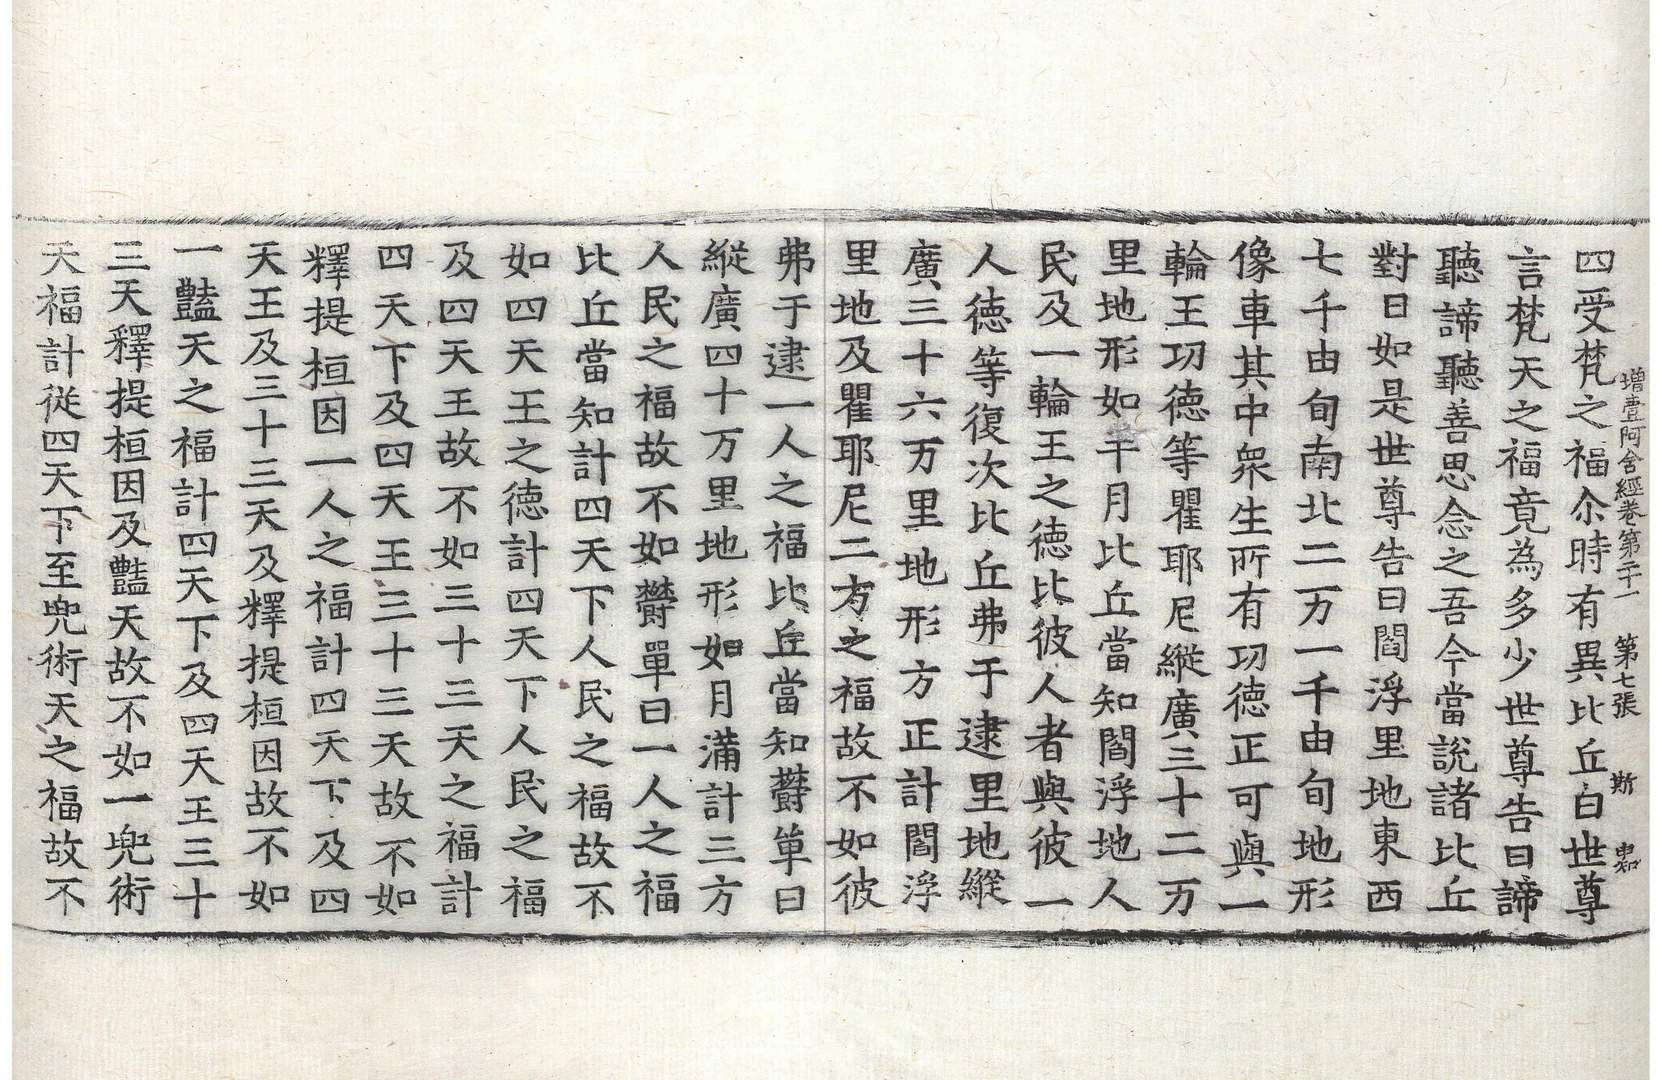 增壹阿含經卷第二十一 第七張 斯
四受梵之福尒時有異比丘白世尊
言梵天之福竟為多少世尊告曰諦
聽諦聽善思念之吾今當說諸比丘
對曰如是世尊告曰閻浮里地東西
七千由旬南北二万一千由旬地形
像車其中衆生所有功德正可與一
輪王功德等瞿耶尼縱廣三十二万
里地形如半月比丘當知閻浮地人
民及一輪王之德比彼人者與彼一
人德等復次比丘弗于逮里地縱
廣三十六万里地形方正計閻浮
里地及瞿耶尼二方之福故不如彼
弗于逮一人之福比丘當知欝單曰
縱廣四十万里地形如月滿計三方
人民之福故不如欝單曰一人之福
比丘當知計四天下人民之福故不
如四天王之德計四天下人民之福
及四天王故不如三十三天之福計
四天下及四天王三十三天故不如
釋提桓因一人之福計四天下及四
天王及三十三天及釋提桓因故不如
一豔天之福計四天下及四天王三十
三天釋提桓因及豔天故不如一兜術
天福計從四天下至兜術天之福故不